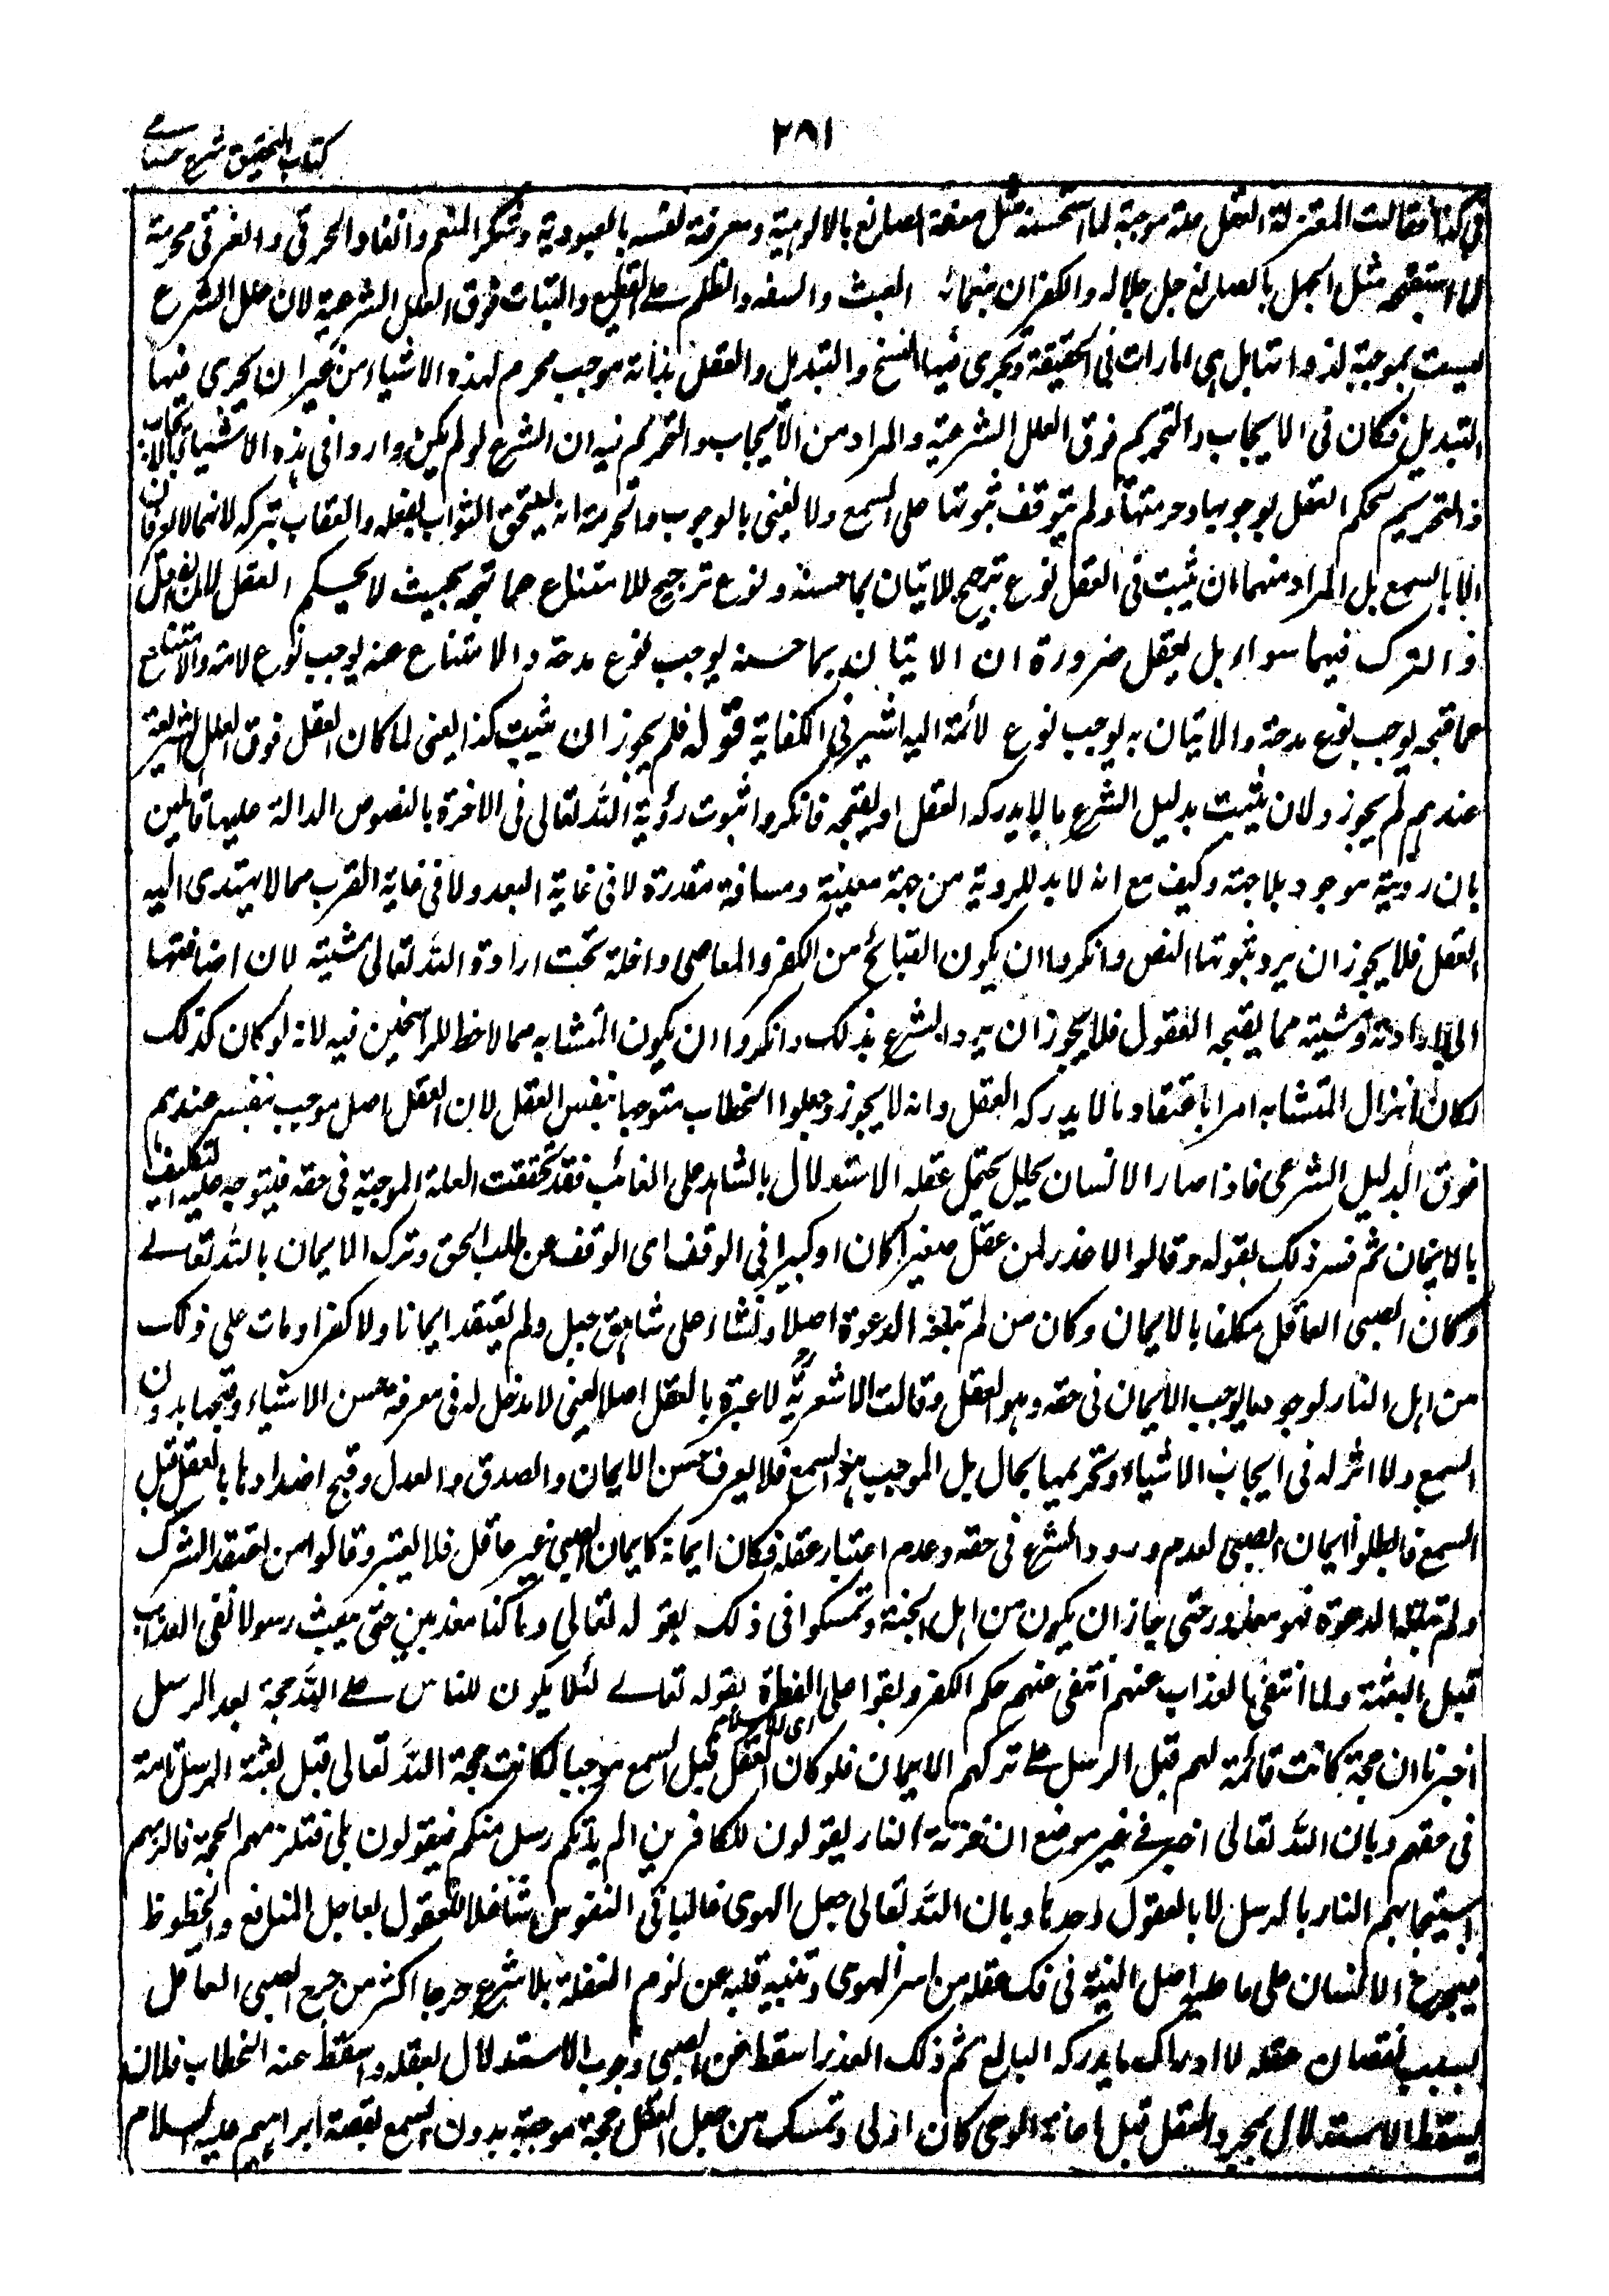 ٢٨١
كتاب التحقيق شرح حسامي
في كذا فقالت المعتزلة العقل علة موجبة لما استحسنه مثل معرفة الصانع بالالوهية ومعرفة نفسه بالعبودية وشكر المنعم وانقاذ الحرقى والغرقى محرمة
لما استقبحه مثل الجهل بالصانع جل جلاله والكفران بنعمائه العبث والسفه والظلم على القطع والثبات فوق العلل الشرعية لان علل الشرع
ليست بموجبة لذواتها بل هي امارات في الحقيقة ويجرى فيها النسخ والتبديل والعقل بذاته موجب محرم لهذه الاشياء من غير ان يجرى فيها
التبديل فكان في الايجاب والتحريم فوق العلل الشرعية والمراد من الايجاب والتحريم فيه ان الشرع لو لم يكن واردا في هذه الاشياء بالايجاب
والتحريم لحكم العقل بوجوبها وحرمتها ولم يتوقف ثبوتها على السمع ولا نعنى بالوجوب والحرمة انه يستحق الثواب بفعله والعقاب بتركه لانهما لا يعرفان
الا بالسمع بل المراد منهما ان يثبت في العقل نوع ترجيح للاتيان بما حسنه ونوع ترجيح للامتناع عما قبحه بحيث لا يحكم العقل ان الفعل
والترك فيهما سواء بل يعقل ضرورة ان الاتيان بما حسنه يوجب نوع مدحة والامتناع عنه يوجب نوع لائمة والامتناع
عما قبحه يوجب نوع مدحة والاتيان به يوجب نوع لائمة اليه اشير في الكفاية قوله فلم يجوز ان يثبت كذا يعنى لما كان العقل فوق العلل الشرعية
عندهم لم يجوزوا ان يثبت بدليل الشرع ما لا يدركه العقل او يقبحه فانكروا ثبوت رؤية الله تعالى في الاخرة بالنصوص الدالة عليها قائلين
بان روية موجود بلا جهة وكيف مع انه لا بد للروية من جهة معينة ومسافة مقدرة لا في غاية البعد ولا في غاية القرب مما لا يهتدى اليه
العقل فلا يجوز ان يرد بثبوتها النص وانكروا ان يكون القبائح من الكفر والمعاصى داخلة تحت ارادة الله تعالى ومشيته لان اضافتها
الى ارادته ومشيته مما يقبحه العقول فلا يجوز ان يرد الشرع بذلك وانكروا ان يكون المتشابه مما لا حظ للراسخين فيه لانه لو كان كذلك
لكان انزال المتشابه امرا باعتقاد ما لا يدركه العقل وانه لا يجوز وجعلوا الخطاب متوجها بنفس العقل لان العقل اصل موجب بنفسه عندهم
فوق الدليل الشرعى فاذا صار الانسان بحال يحتمل عقله الاستدلال بالشاهد على الغائب فقد تحققت العلة الموجبة في حقه فيتوجه عليه التكليف
بالايمان ثم فسر ذلك بقوله وقالوا لا عذر لمن عقل صغيرا كان او كبيرا في الوقف اى الوقف عن طلب الحق وترك الايمان بالله تعالى
وكان الصبى العاقل مكلفا بالايمان وكان من لم تبلغه الدعوة اصلا ونشاء على شاهق جبل ولم يعتقد ايمانا ولا كفرا ومات على ذلك
من اهل النار لوجود ما يوجب الايمان في حقه وهو العقل وقالت الاشعرية لا عبرة بالعقل اصلا يعنى لا مدخل له في معرفة حسن الاشياء وقبحها بدون
السمع ولا اثر له في ايجاب الاشياء وتحريمها بحال بل الموجب هو السمع فلا يعرف حسن الايمان والصدق والعدل وقبح اضدادها بالعقل قبل
السمع فابطلوا ايمان الصبى لعدم ورود الشرع في حقه وعدم اعتبار عقله فكان ايمانه كايمان صبى غير عاقل فلا يعتبر وقالوا من اعتقد الشرك
ولم تبلغه الدعوة فهو معذور حتى جاز ان يكون من اهل الجنة وتمسكوا في ذلك بقوله تعالى وما كنا معذبين حتى نبعث رسولا نفى العذاب
قبل البعثة ولما انتفى العذاب عنهم انتفى عنهم حكم الكفر وبقوا على الفطرة بقوله تعالى لئلا يكون للناس على الله حجة بعد الرسل
اى الاسلام
اخبرنا ان حجة كانت قائمة لهم قبل الرسل على تركهم الايمان فلو كان العقل قبل السمع موجبا لكانت حجة الله تعالى قبل بعثة الرسل تامة
في حقهم وبان الله تعالى اخبر في غير موضع ان خزنة النار يقولون للكافرين الم ياتكم رسل منكم فيقولون بلى فتلزمهم الحجة فالزمهم
استيجابهم النار بالرسل لا بالعقول وحدها وبان الله تعالى جعل الهوى غالبا في النفوس شاغلا للعقول بعاجل المنافع والحظوظ
فيحرج الانسان على ما عليه اصل البنية في فك عقله من اسر الهوى وتنبيه قلبه عن نوم الغفلة بلا شرع حرجا اكثر من حرج الصبى العاقل
بسبب نقصان عقله لادراك ما يدركه البالغ ثم ذلك العذر اسقط عن الصبى وجوب الاستدلال بعقله واسقط عنه الخطاب فلان
يسقط الاستدلال بمجرد العقل قبل اعانة الوحى كان اولى وتمسك من جعل العقل حجة موجبة بدون السمع بقصة ابراهيم عليه السلام